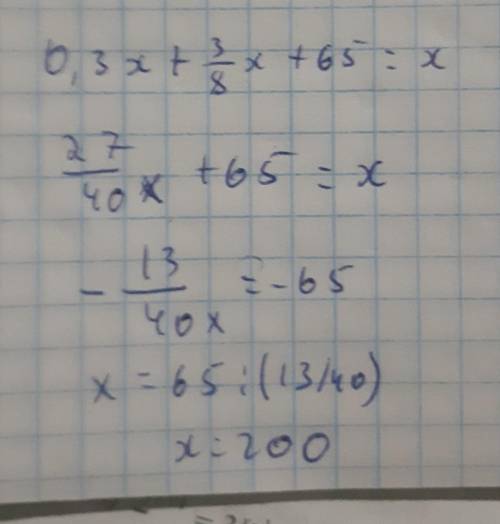 0,3x + 3/8 x + 65 = x
27/40 x + 65 = x
- 13/40x = -65
x = 65 : (13/40)
x = 200